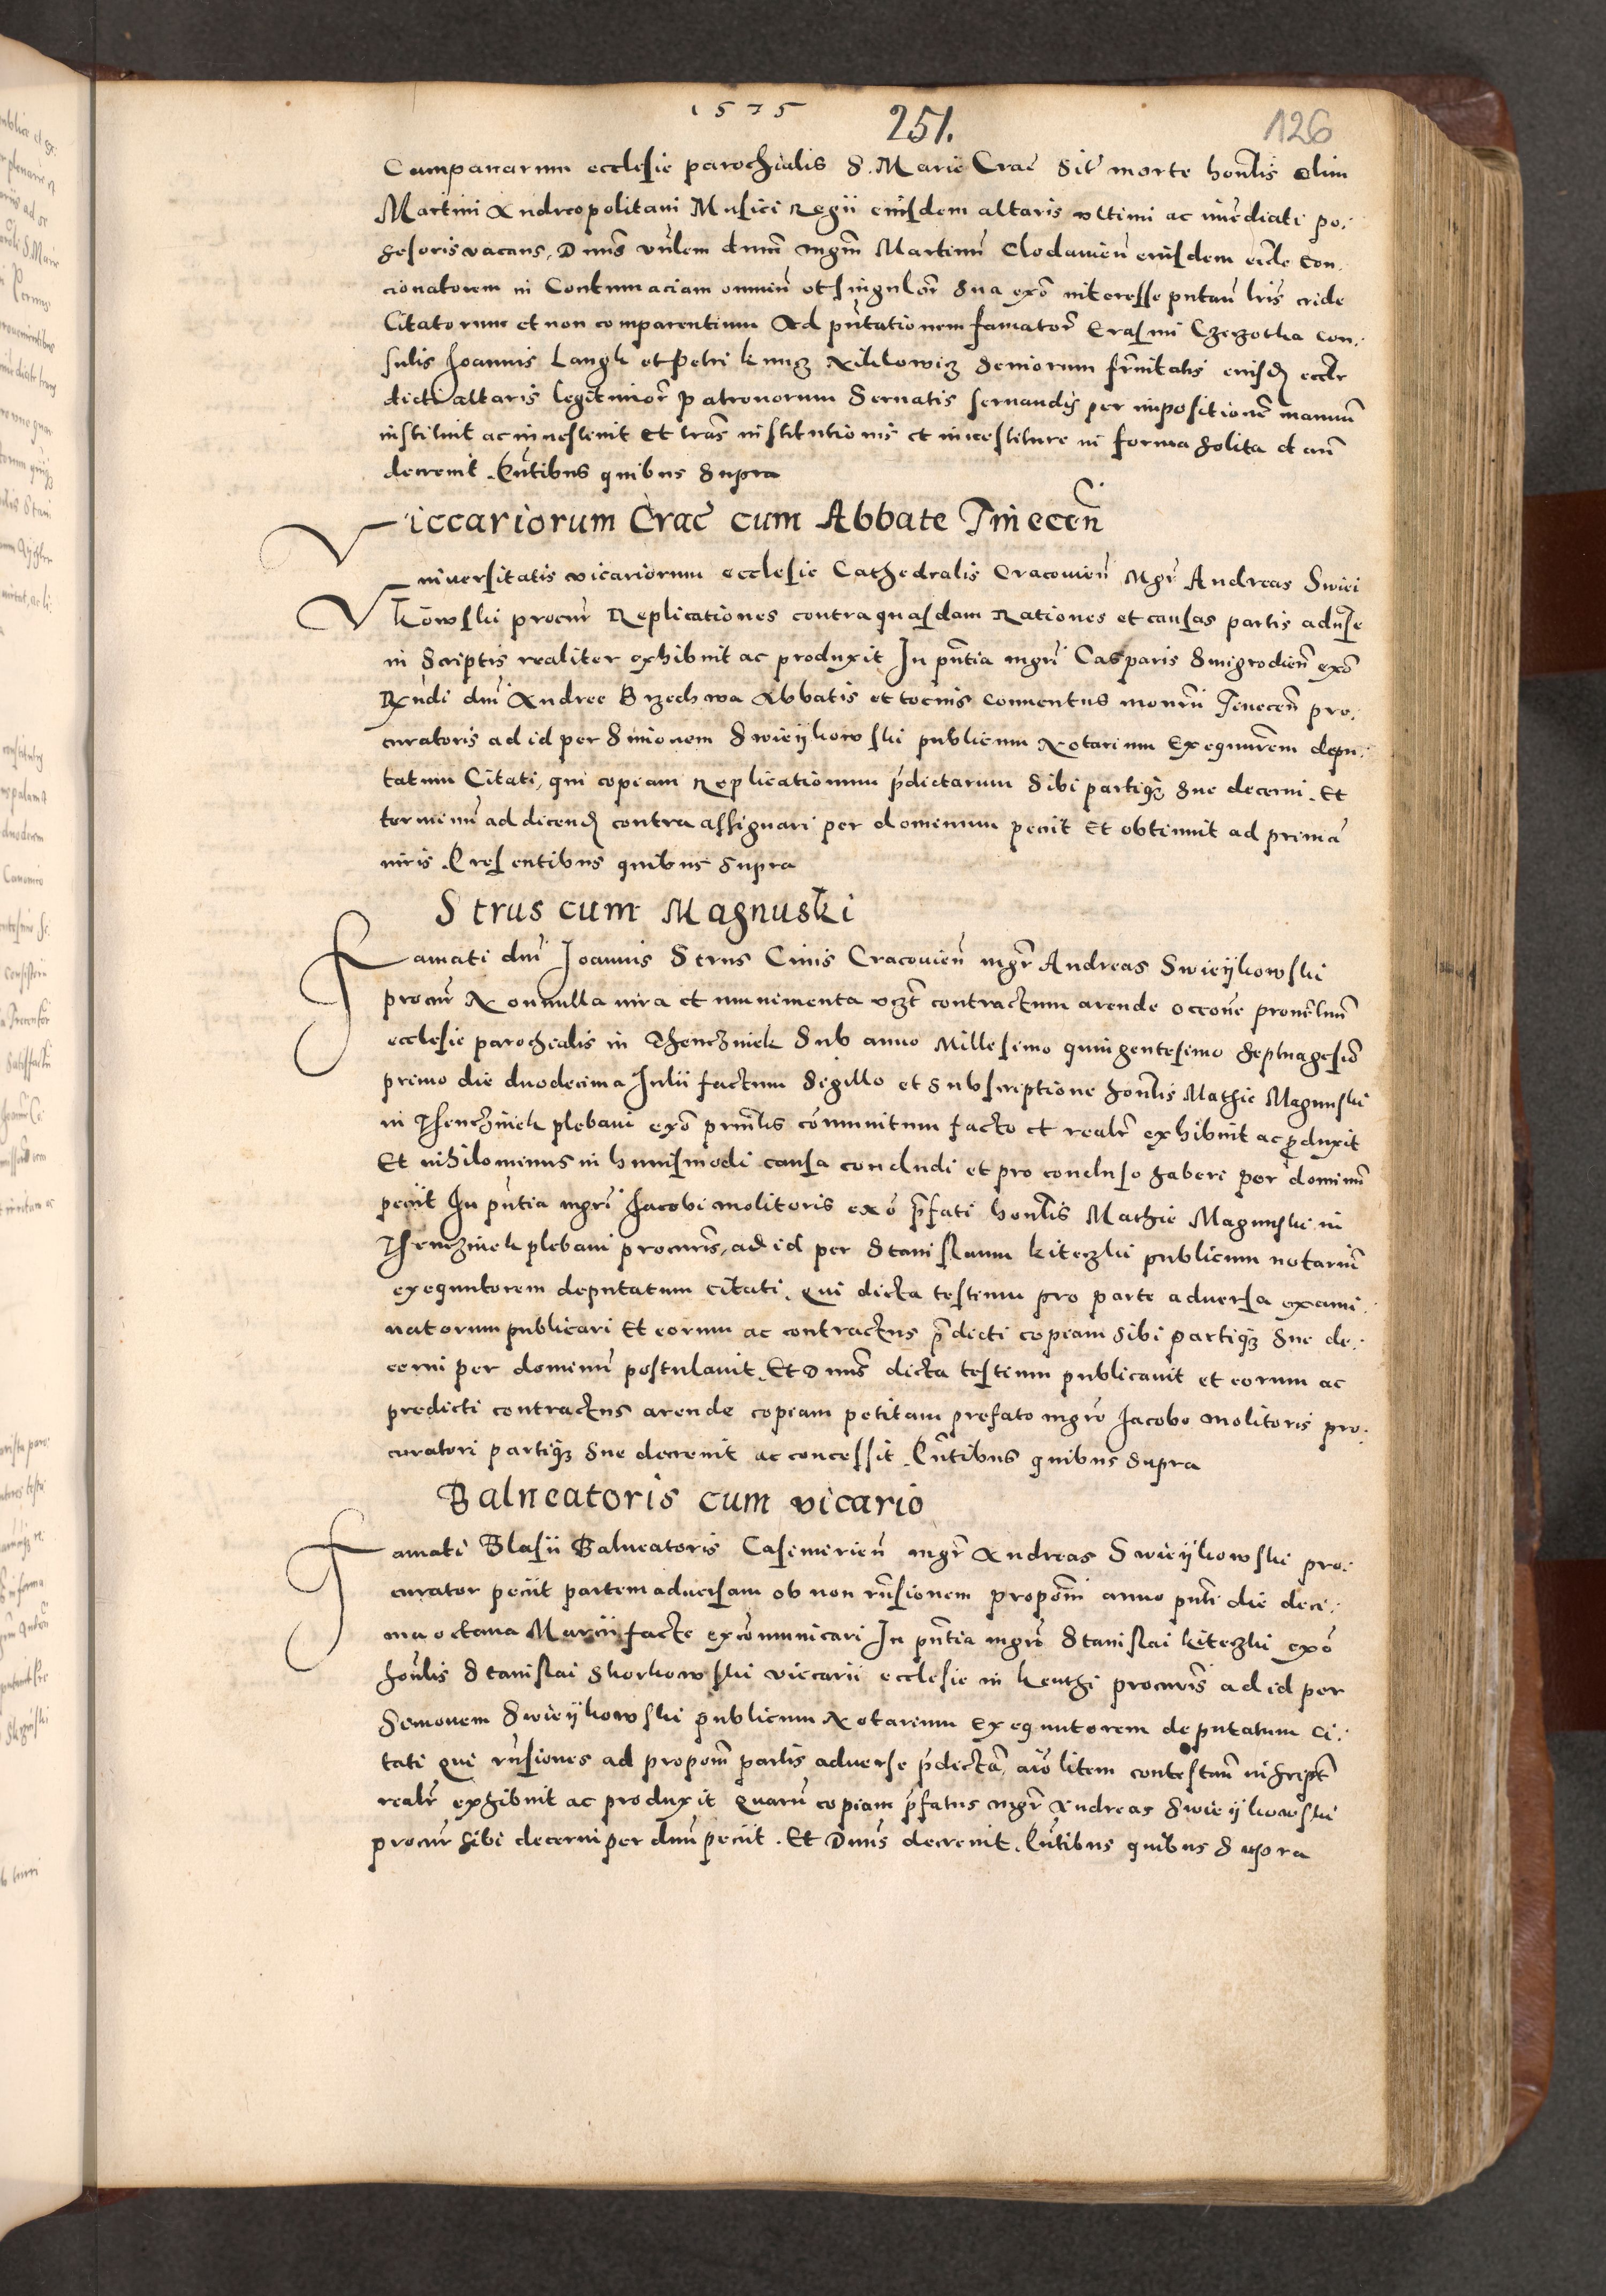 1575
251.
126
Campanarum ecclesie parochialis S. Marie Crac sit̃ morte honlis olim
Martini Andreopolitani Musici Regii eiusdem altaris vltimi ac im̃ediati po:
sesoris vacans, Dnus vñlem dnum mgrm Martinũ Clodavieñ eiusdem ecc̃le con:
cionatorem in Contumaciam omniũ et singulor̃ sua exõ interesse putañ lris cride
Citatorum et non comparentium Ad p̃ntationem famator̃ Erasmi Czeczotka con:
sulis Joannis Langk et Petri kuncz Seniorum fr̃nitatis eiusd̃ eccl̃e
dicti altaris legitimor̃ patronorum Seruatis seruandis per impositionẽ manuũ
instituit ac inuestiuit Et lras institutionis et inuestiture in forma solita dandas
decreuit Pñtibus quibus supra
Viccariorum Crac̃ cum Abbate Tinecen̄
Vniuersitatis vicariorum ecclesie Cathedralis Cracovieñ Mgr̃ Andreas Swiei
kowski procur̃ Replicationes contra quasdam Rationes et causas partis aduerse
in Scriptis realiter exhibuit ac produxit In pñtia mgri Casparis Smigrodieñ exõ
Rñdi dni Andree Brzechwa Abbatis et tocius conuentus monrii Tineceñ pro:
curatoris ad id per Simonem Swieykowski publicum Notarium Exequutorem depu:
tatum Citati, qui copiam Replicationum p̃dictarum sibi partiq̃ sue decerni. Et
terminũ ad dicend̃ contra assignari per dominum peciit Et obtinuit ad primã
iuris. Presentibus quibus supra
Strus cum Magnuski
Famati dni Joannis Strus Ciuis Cracovieñ mgr̃ Andreas Swieykowski
procur̃ Nonnulla iura et munimenta vczt contractum arende occõne prouentuũ
ecclesie parochialis in Thenczinek Sub anno Millesimo quingentesimo septuagesiõ
primo die duodecima Julii factum sigillo et subscriptione honlis Mathie Magnuski
in Thenczinek plebani exõ prinlis com̃unitum facto et realr̃ exhibuit ac produxit
Et nihilominus in huiusmodi causa concludi et pro concluso haberi per dominũ
peciit In pñtia mgri Jacobi molitoris exõ p̃fati honlis Mathie Magnuski in
Thenczinek plebani procuris, ad id per Stanislaum kiteczki publicum notariũ
exequutorem deputatum citati, qui dicta testium pro parte aduersa exami:
natorum publicari Et eorum ac contractus p̃dicti copiam sibi partiq̃ sue de:
cerni per dominũ postulavit. Et Dnus dicta testium publicavit et eorum ac
predicti contractus arende copiam petitam prefato mgro Jacobo molitoris pro:
curatori partiq̃ sue decreuit ac concessit. Pñtibus quibus supra
Balneatoris cum vicario
Famati Blasii Balneatoris Casimirieñ mgr̃ Andreas Swieykowski pro:
curator peciit partem adversam ob non rñsionem propõni anno pñti die deci:
ma octaua Marcii facte excom̃unicari In pñtia mgri Stanislai kiteczki exõ
honlis Stanislai Skorkowski viccarii ecclesie in kenthi procuris ad id per
Simonem Swieykowski publicum Notarium Exequutorem deputatum ci:
tati qui rñsiones ad propõni partis aduerse p̃dictã, aĩo litem contestañ in script̃
realr̃ exhibuit ac produxit Quarũ copiam p̃fatus mgr̃ Andreas Swieykowski
procur̃ sibi decerni per dnũ peciit. Et Dnus decreuit. Pñtibus quibus supra